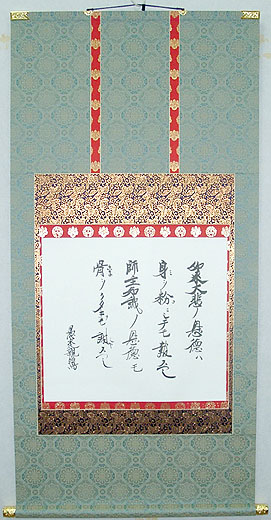 如来大悲ノ恩徳ハ
身ヲ粉ニシテモ報スヘシ
師主知識ノ恩徳モ
骨ヲクタキテモ謝スヘシ
親鸞